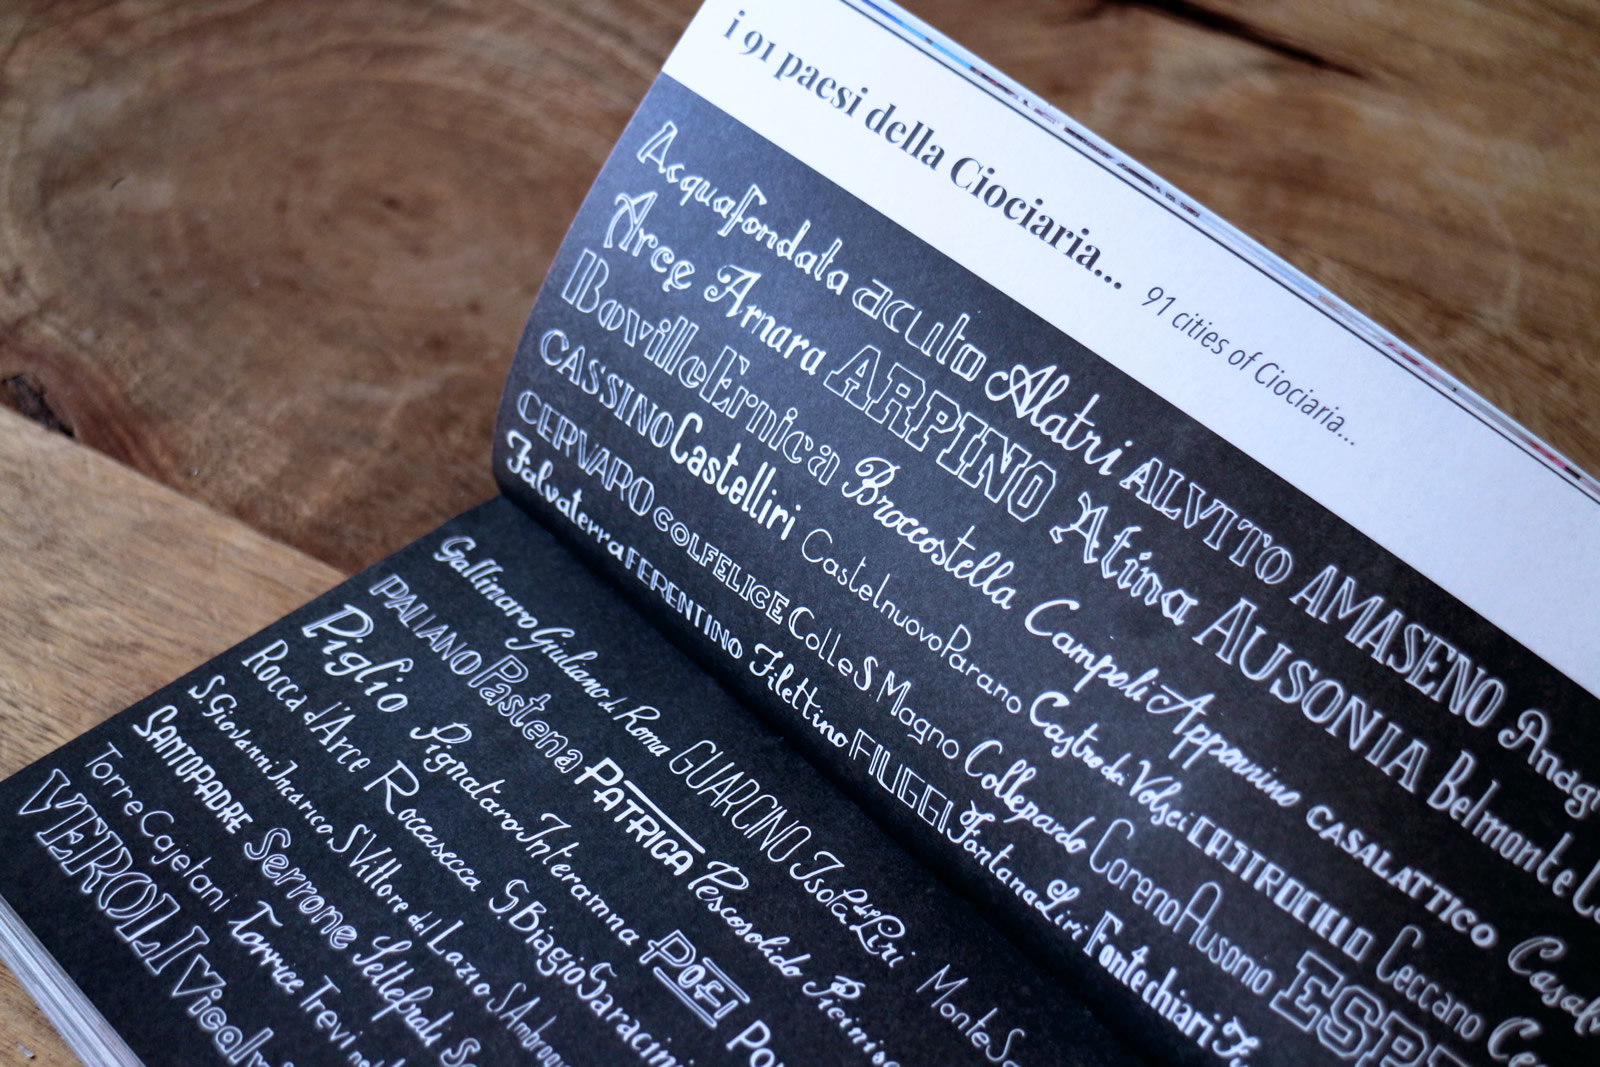 i 91 paesi della Ciociaria... 91 cities of Ciociaria...
Acquafondata acuto Alatri ALVITO AMASENO
Arce Arnara ARPINO Atina AUSONIA Belmonte
Boville Ernica Broccostella Campoli Appennino CASALATTICO
CASSINO Castelliri Castelnuovo Parano Castro dei Volsci CASTROCIELO Ceccano
CERVARO COLFELICE Colle S. Magno Collepardo Coreno Ausonio
Falvaterra FERENTINO Filettino FIUGGI Fontana Liri Fontechiari
Gallinaro Giuliano di Roma GUARCINO Isola del Liri
PALIANO Pastena PATRICA Pescosolido
Piglio Pignataro Interamna POFI
Rocca d'Arce Roccasecca S. Biagio Saracini
S. Giovanni Incarico S. Vittore del Lazio
SANTOPADRE Serrone Settefrati
Torre Cajetani Torrice Trevi nel
VEROLI